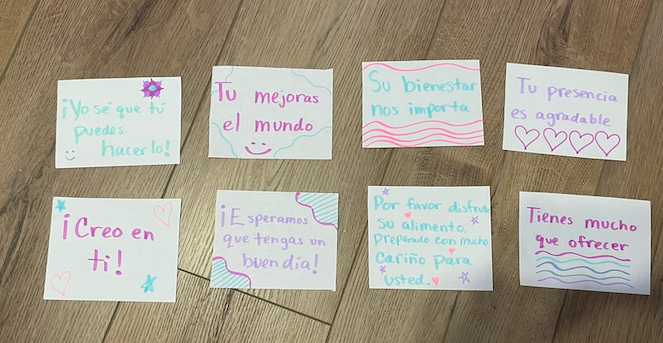 ¡Yo sé que tú
puedes
hacerlo!
Tu mejoras
el mundo
Su bienestar
nos importa
Tu presencia
es agradable
¡Creo en
ti!
¡Esperamos
que tengas un
buen día!
Por favor disfrute
su alimento,
preparado con mucho
cariño para
usted.
Tienes mucho
que ofrecer